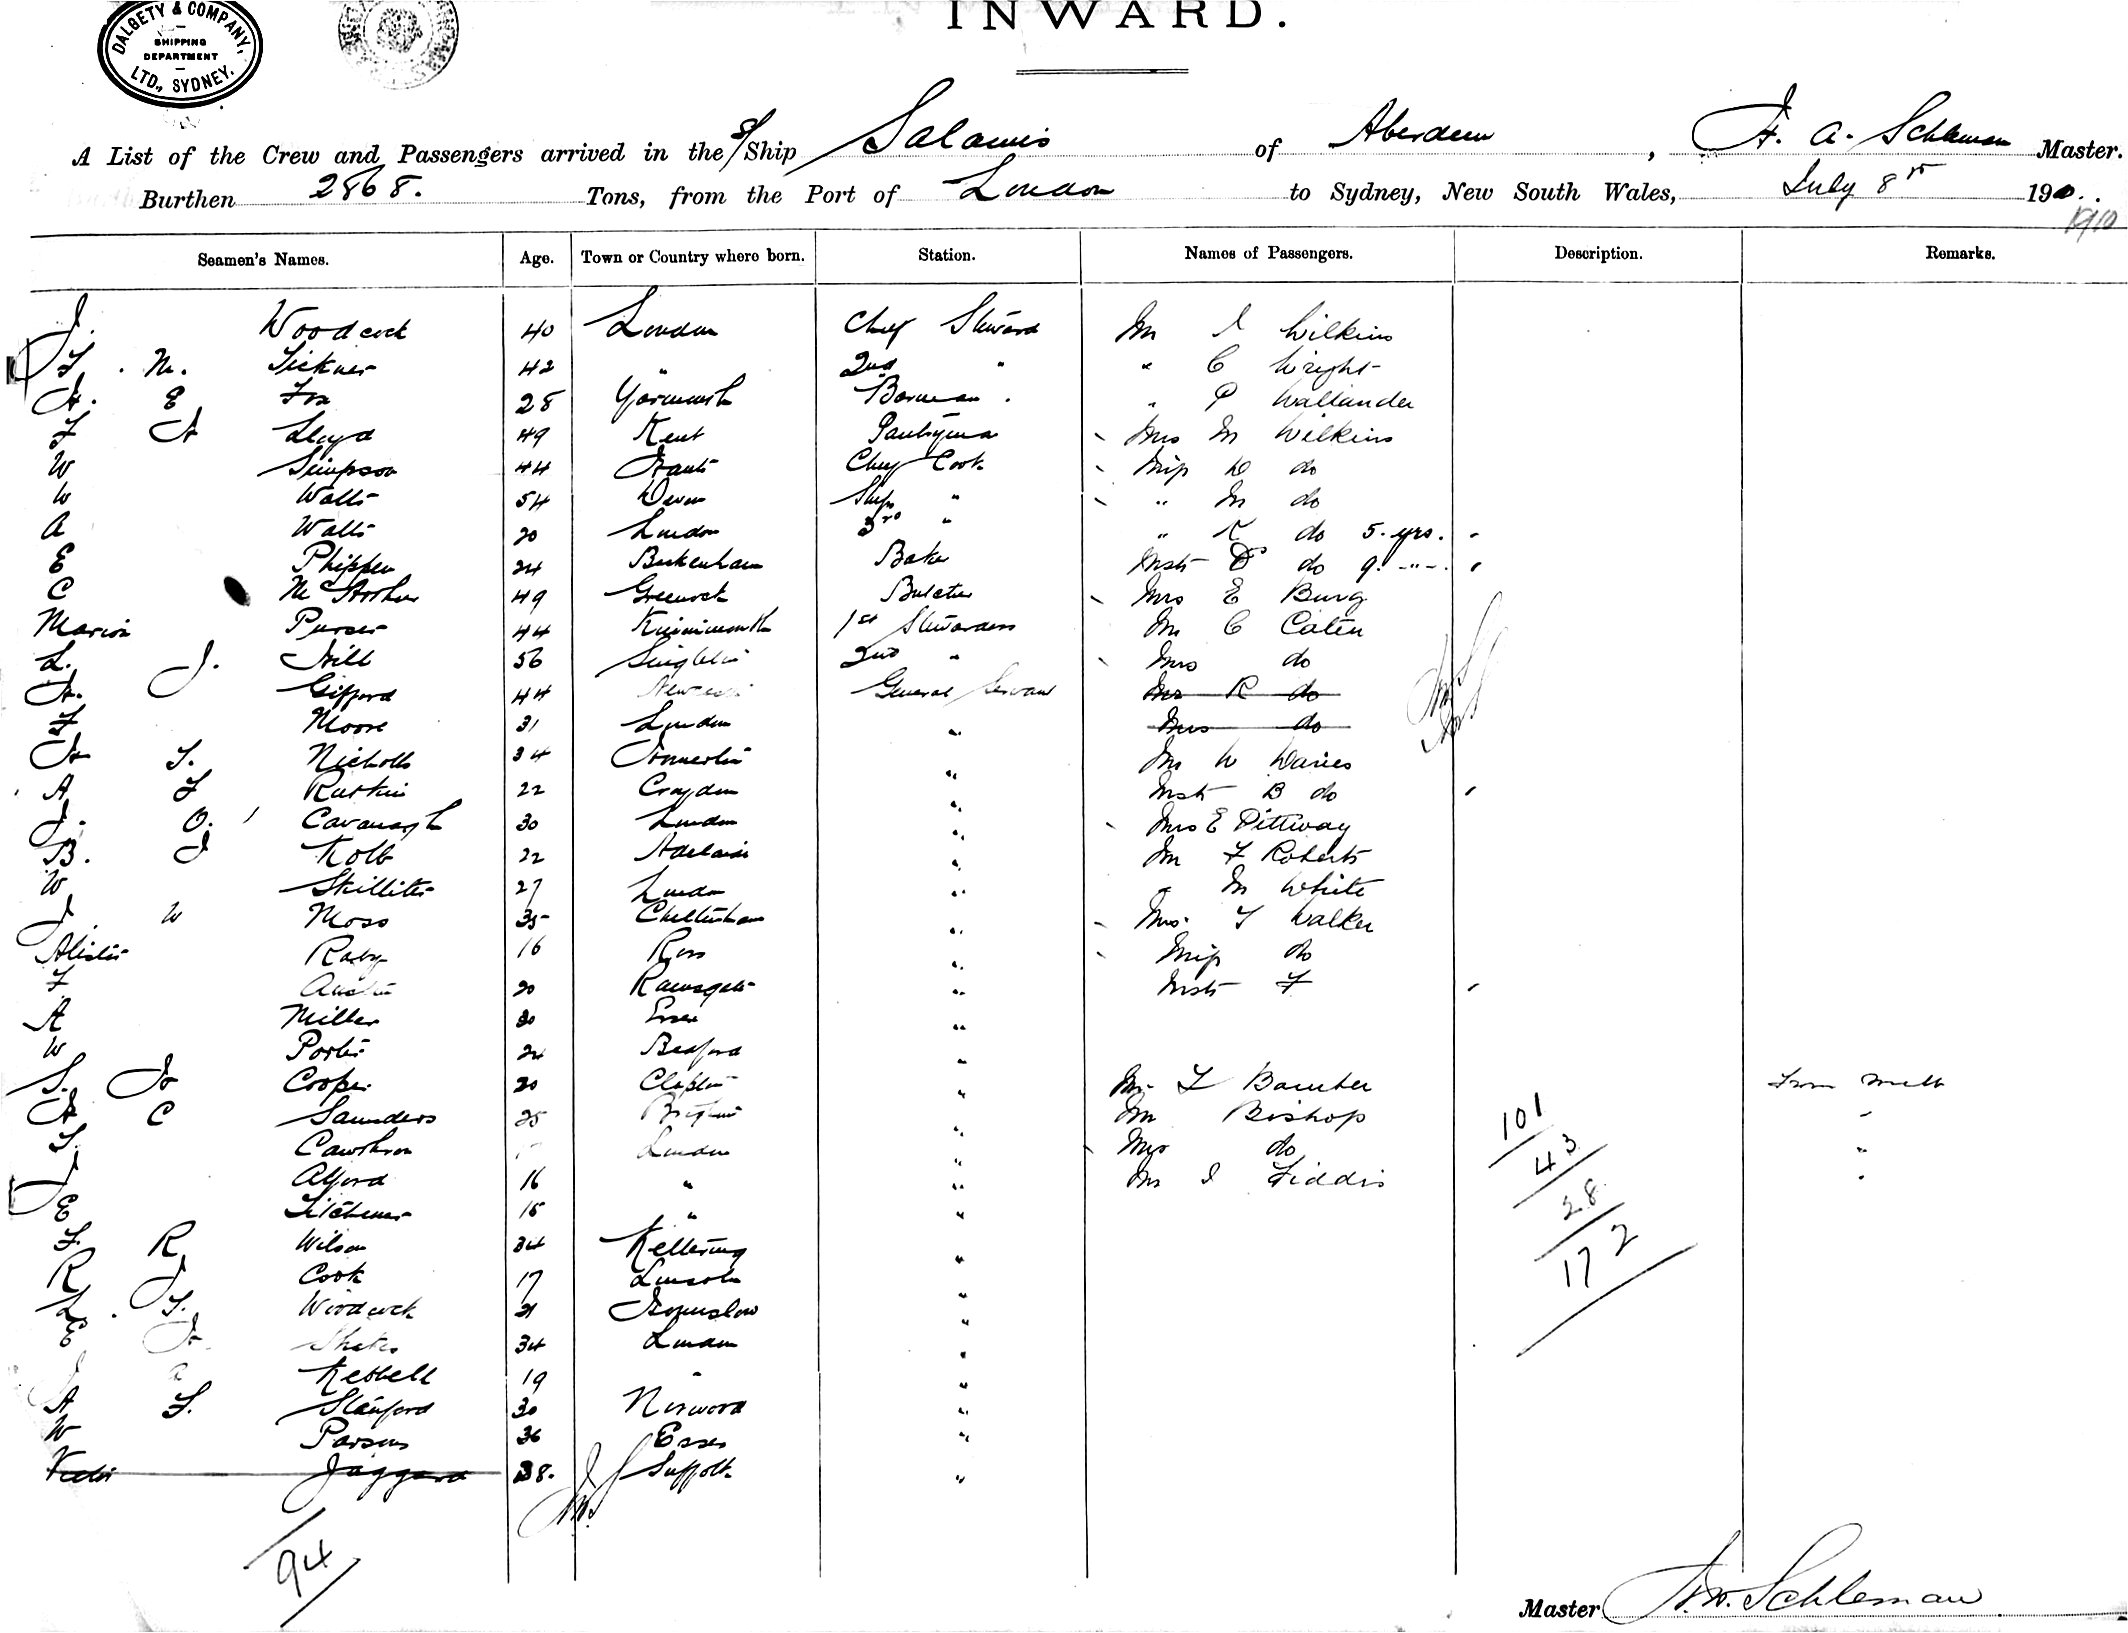 DALGETY & COMPANY,
SHIPPING
DEPARTMENT
LTD., SYDNEY.
INWARD.
A List of the Crew and Passengers arrived in the S/Ship Salamis of Aberdeen, H. A. Schleman Master.
Burthen 2868. Tons, from the Port of London to Sydney, New South Wales, July 8th 190..
Seamen's Names. Age. Town or Country where born. Station. Names of Passengers. Description. Remarks.
J. Woodcock 40 London Chief Steward Mr I Wilkins
T. M. Tickner 42 " 2nd " " C Wright
H. E Fox 28 Yarmouth Barman. " P Wallander
F H Lloyd 49 Kent Pantryman Mrs M Wilkins
W Simpson 44 Hants Chief Cook Miss D do
W Watts 54 Devon Ships " " M do
A Watts 20 London 3rd " " K do 5. yrs.
E Phippen 24 Beckenham Baker Mstr D do 9. -"-.
C McArthur 49 Greenock Butcher Mrs E Burg
Marion Purser 44 1st Stewardess Mr C Caten
L. J. Hill 56 2nd " Mrs do
H. Gifford 44 General Servant Mr R do
F Moore 31 London " Mrs do
H T. Nicholls 34 " Mr W Davies
A F Ruskin 22 Croydon " Mstr B do
J. O. Cavanagh 30 London " Mrs E Pittway
B. J Kolb 22 Adelaide " Mr F Roberts
W Skilliter 27 London " " M White
J. W Moss 35 Cheltenham " Mrs. T Walker
Raby 16 Ross " Miss do
F Austin 20 Ramsgate " Mstr F
A Miller 30 Essex "
W Porter 24 Bedford "
S. H Cooper 20 Clapton " Mr F Bamber From Melb
H C Saunders 25 " Mr Bishop "
T. Cawthron London " Mrs do "
J Alford 16 " " Mr I Fiddis "
E Titchener 18 " "
F. R Wilson 34 Kettering "
R J Cook 17 Lincoln "
L. T. Woodcock 21 Hounslow "
E H 34 London "
Kebbell 19 " "
A F. Stanford 30 Norwood "
W Parsons 36 Essex "
Jaggard 38. Suffolk "
101
43
28
172
94
Master H. W. Schleman